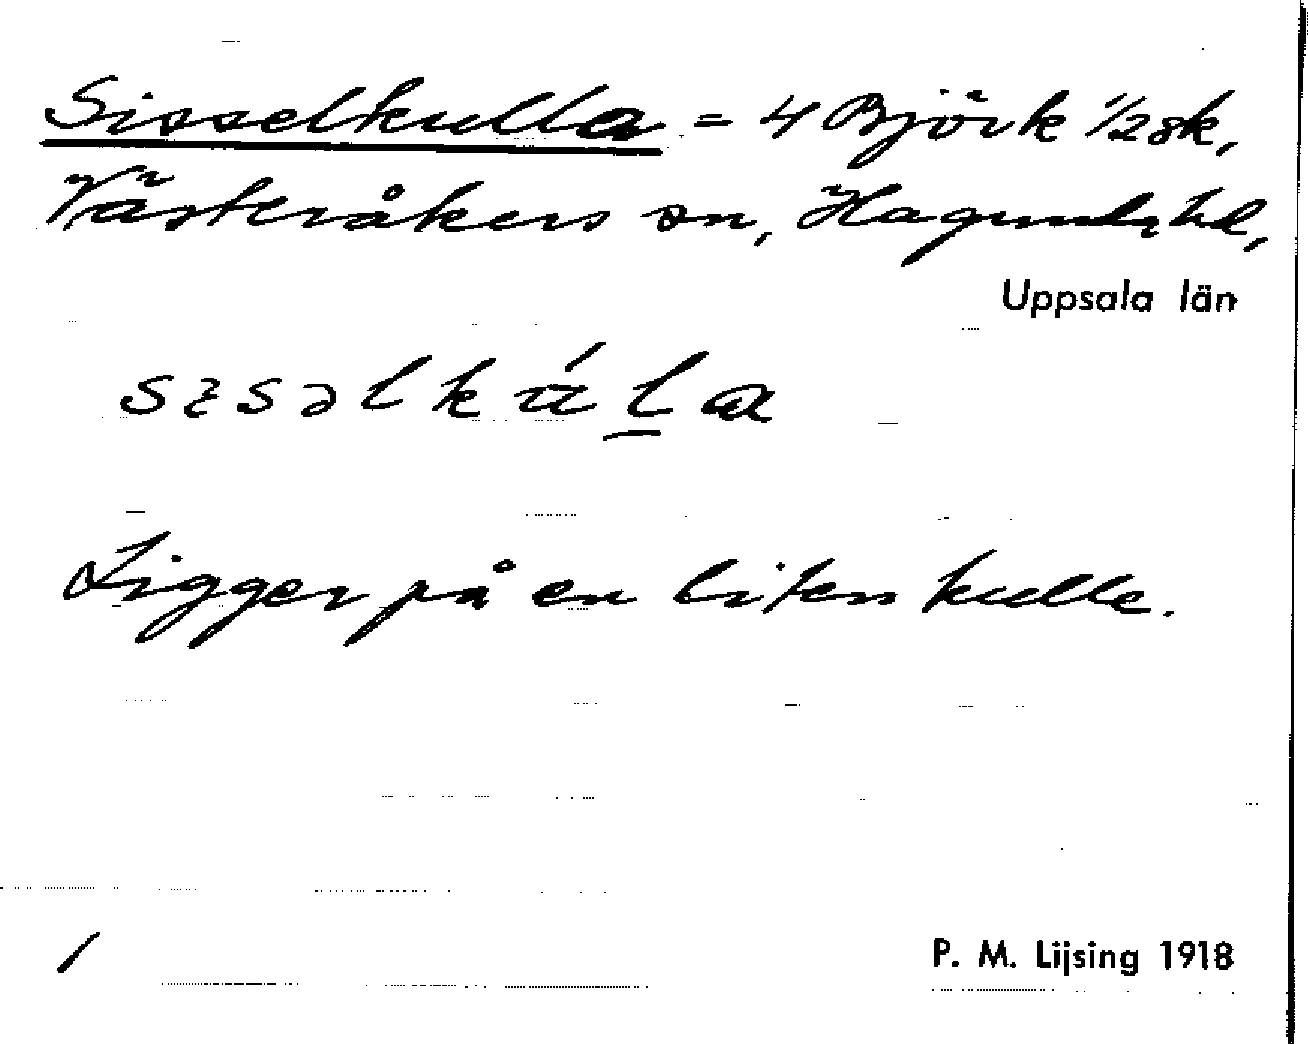 Sisselkulla = 4 Björk 1/2 sk,
Västeråkers sn, Hagunda hd,
Uppsala län
Ligger på en liten kulle.
/
P. M. Lijsing 1918